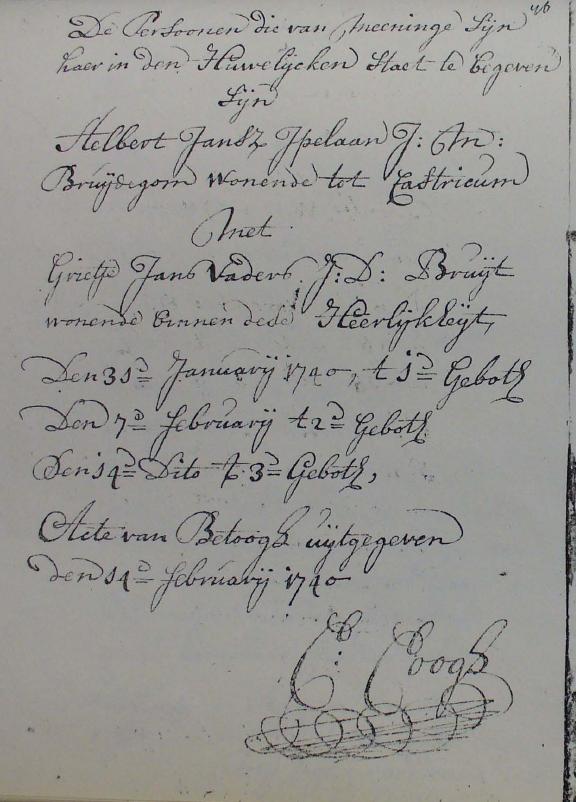 46
De Persoonen die van meeninge Sijn
haer in den Huwelijcken Staet te begeven
Sijn
Aelbert Jansz Jpelaan J: M:
Bruijdegom wonende tot Castricum
Met
Grietje Jans Vaders J: D: Bruijt
wonende binnen dese Heerlijkheijt,
Den 31d= Januarij 1740, t 1d= Geboth
Den 7d= februarij t 2d= Geboth
Den 14d= Dito t 3d= Geboth,
Acte van Betoogh uijtgegeven
den 14d= februarij 1740
Coogh